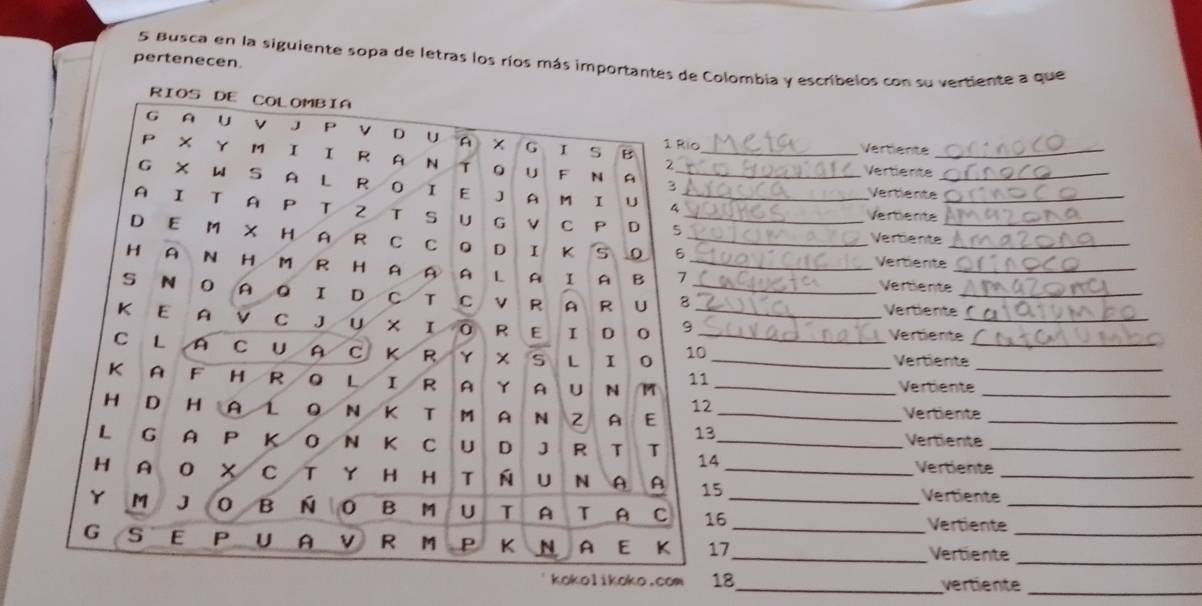 5 Busca en la siguiente sopa de letras los ríos más importantes de Colombia y escríbelos con su vertiente a que
pertenecen.
RIOS DE COLOMBIA
G A U V J P V D U A X G I S B
P X Y M I I R A N T Q U F N A
G X W S A L R O I E J A M I U
A I T A P T Z T S U G V C P D
D E M X H A R C C Q D I K S O
H A N H M R H A A A L A I A B
S N O A Q I D C T C V R A R U
K E A V C J U X I O R E I D O
C L A C U A C K R Y X S L I O
K A F H R Q L I R A Y A U N M
H D H A L Q N K T M A N Z A E
L G A P K O N K C U D J R T T
H A O X C T Y H H T Ñ U N A A
Y M J O B Ñ O B M U T A T A C
G S E P U A V R M P K N A E K
kokolikoko.com
1 Rio Meta Vertiente Orinoco
2 rio guaviare Vertiente Orinoco
3 Arauca Vertiente Orinoco
4 Vaupes Vertiente Amazona
5 Putumayo Vertiente Amazona
6 Vertiente Orinoco
7 Caqueta Vertiente Amazona
8 Zulia Vertiente Catatumbo
9 Vertiente Catatumbo
10 Vertiente
11 Vertiente
12 Vertiente
13 Vertiente
14 Vertiente
15 Vertiente
16 Vertiente
17 Vertiente
18 vertiente